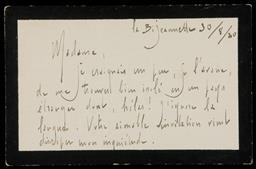 la B. jeannette 30/8/20
Madame,
Je craignais un peu, je l'avoue,
de me trouver bien isolé en un pays
étranger dont, hélas! j'ignore la
langue. Votre aimable invitation vient
dissiper mon inquiétude.